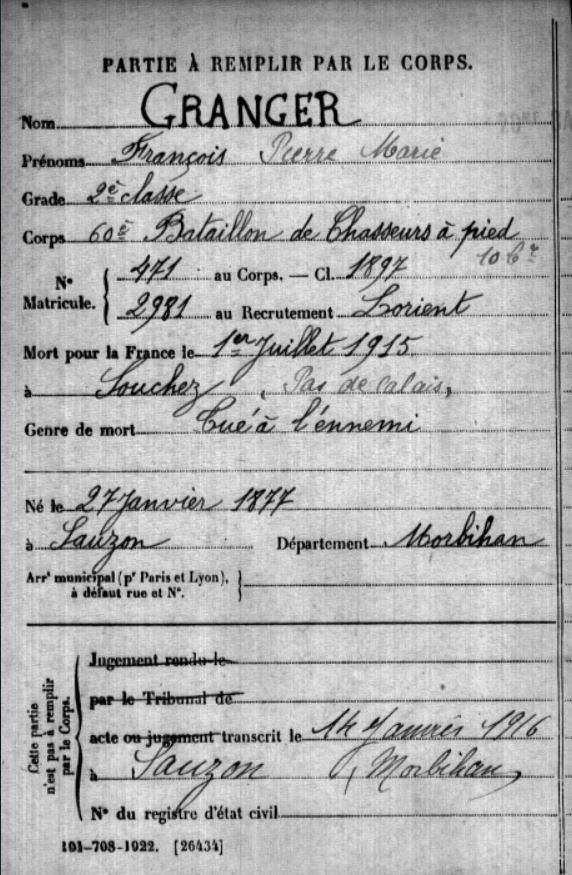 PARTIE À REMPLIR PAR LE CORPS.
Nom GRANGER
Prénoms François Pierre Marie
Grade 2è classe
Corps 60è Bataillon de Chasseurs à pied
N° Matricule. 471 au Corps. — Cl. 1897
2981 au Recrutement Lorient
Mort pour la France le 1er Juillet 1915
à Souchez (Pas de Calais)
Genre de mort Tué à l'ennemi
Né le 27 Janvier 1877
à Sauzon Département Morbihan
Arrt municipal (pr Paris et Lyon),
à défaut rue et N°.
Cette partie
n'est pas à remplir
par le Corps.
Jugement rendu le
par le Tribunal de
acte ou jugement transcrit le 14 Janvier 1916
à Sauzon (Morbihan)
N° du registre d'état civil
101-708-1922. [26434]